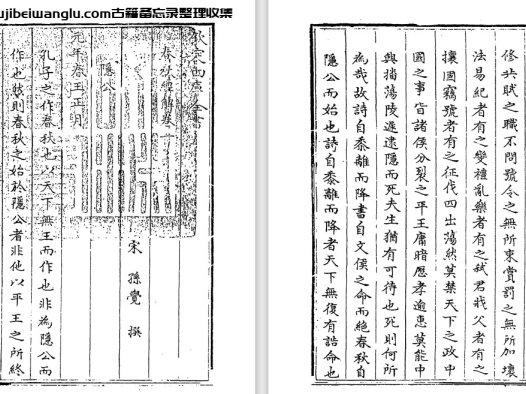 ujibeiwanglu.com古籍备忘录整理收集
欽定四庫全書
春秋經解卷一
宋 孫覺 撰
隱公
元年春王正月
孔子之作春秋也以天下無王而作也非為隱公而
作也然則春秋之始於隱公者非他以平王之所終
修共賦之職不問號令之無所束賞罰之無所加壞
法易紀者有之變禮亂樂者有之弒君戕父者有之
攘國竊號者有之征伐四出蕩然莫禁天下之政中
國之事皆諸侯分裂之平王庸暗歷孝逾惠莫能中
興播蕩陵遲逮隱而死夫生猶有可待也死則何所
為哉故詩自黍離而降書自文侯之命而絕春秋自
隱公而始也詩自黍離而降者天下無復有誥命也